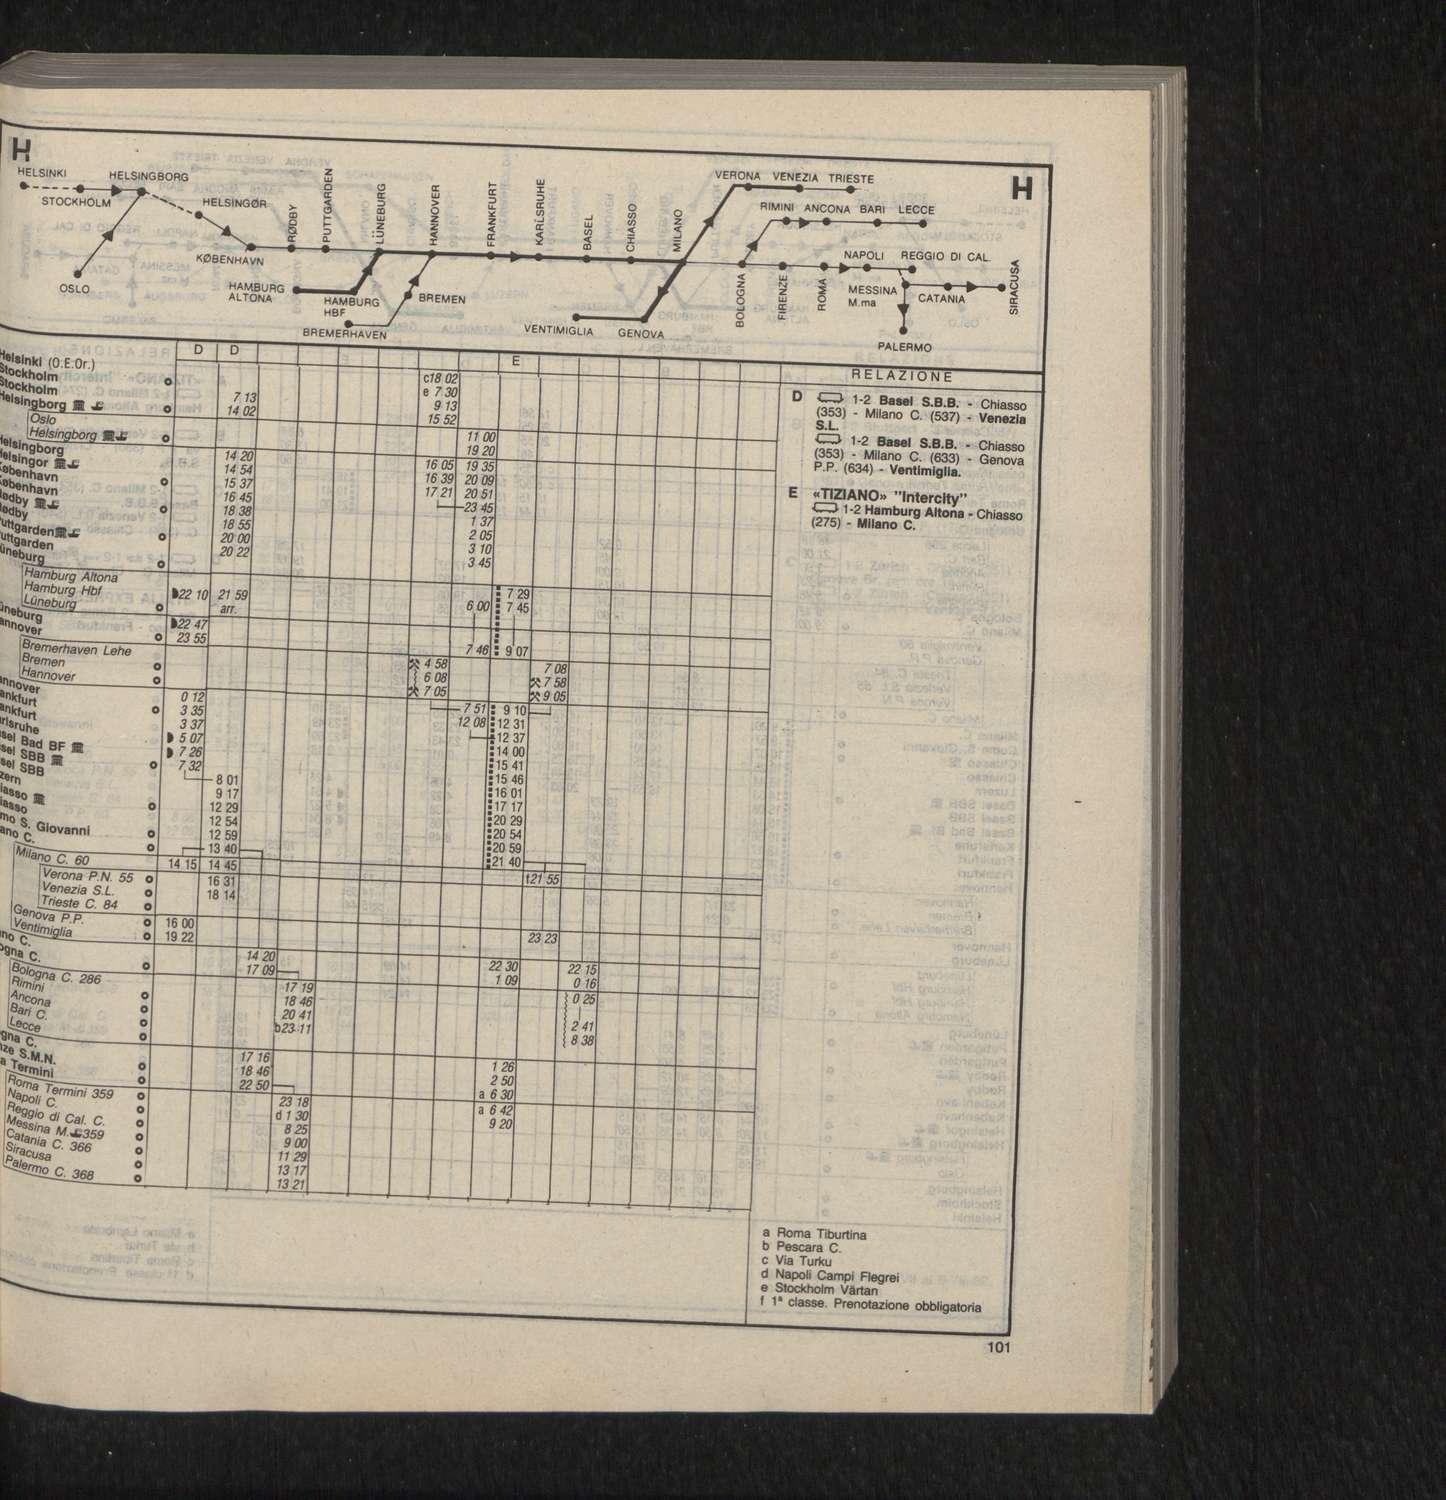 H
H
HELSINKI
HELSINGBORG
STOCKHOLM
HELSINGØR
OSLO
KØBENHAVN
RØDBY
PUTTGARDEN
LÜNEBURG
HAMBURG
ALTONA
HAMBURG
HBF
BREMERHAVEN
BREMEN
HANNOVER
FRANKFURT
KARLSRUHE
BASEL
CHIASSO
MILANO
VENTIMIGLIA
GENOVA
VERONA VENEZIA TRIESTE
RIMINI ANCONA BARI LECCE
BOLOGNA
FIRENZE
ROMA
NAPOLI REGGIO DI CAL.
MESSINA
M.ma
CATANIA
SIRACUSA
PALERMO
D D E
RELAZIONE
Helsinki (O.E.Or.) c18 02
Stockholm e 7 30
Stockholm 7 13 9 13
Helsingborg 14 02 15 52
Oslo 11 00
Helsingborg 19 20
Helsingborg 14 20 16 05 19 35
Helsingor 14 54 16 39 20 09
København 15 37 17 21 20 51
København 16 45 23 45
Rødby 18 38 1 37
Rødby 18 55 2 05
Puttgarden 20 00 3 10
Puttgarden 20 22 3 45
Lüneburg
Hamburg Altona 7 29
Hamburg Hbf 22 10 21 59 6 00 7 45
Lüneburg arr.
Lüneburg 22 47
Hannover 23 55 7 46 9 07
Bremerhaven Lehe 4 58 7 08
Bremen 6 08 7 58
Hannover 7 05 9 05
Hannover 0 12 7 51 9 10
Frankfurt 3 35 12 08 12 31
Frankfurt 3 37 12 37
Karlsruhe 5 07 14 00
Basel Bad BF 7 26 15 41
Basel SBB 7 32 15 46
Basel SBB 8 01 16 01
Luzern 9 17 17 17
Chiasso 12 29 20 29
Chiasso 12 54 20 54
Como S. Giovanni 12 59 20 59
Milano C. 13 40 21 40
Milano C. 60 14 15 14 45 f21 55
Verona P.N. 55 16 31
Venezia S.L. 18 14
Trieste C. 84
Genova P.P. 16 00 23 23
Ventimiglia 19 22
Milano C. 14 20 22 30 22 15
Bologna C. 17 09 1 09 0 16
Bologna C. 286 17 19 0 25
Rimini 18 46
Ancona 20 41 2 41
Bari C. b23 11 8 38
Lecce
Bologna C. 17 16 1 26
Firenze S.M.N. 18 46 2 50
Roma Termini 22 50 a 6 30
Roma Termini 359 23 18 a 6 42
Napoli C. d 1 30 9 20
Reggio di Cal. C. 8 25
Messina M. 359 9 00
Catania C. 366 11 29
Siracusa 13 17
Palermo C. 368 13 21
D 1-2 Basel S.B.B. - Chiasso
(353) - Milano C. (537) - Venezia
S.L.
1-2 Basel S.B.B. - Chiasso
(353) - Milano C. (633) - Genova
P.P. (634) - Ventimiglia.
E «TIZIANO» "Intercity"
1-2 Hamburg Altona - Chiasso
(275) - Milano C.
a Roma Tiburtina
b Pescara C.
c Via Turku
d Napoli Campi Flegrei
e Stockholm Värtan
f 1ª classe. Prenotazione obbligatoria
101